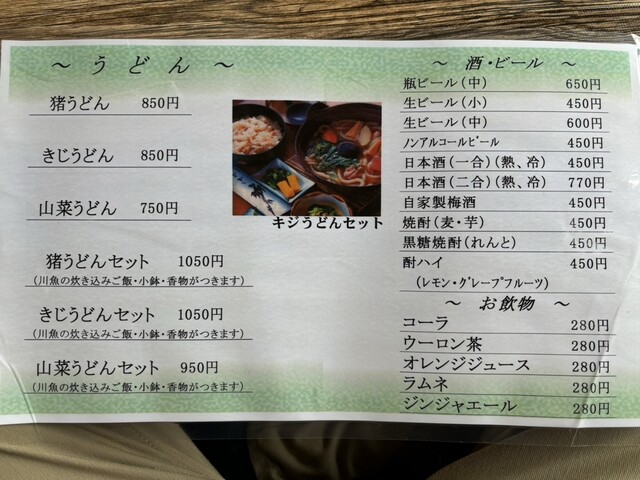 ～ うどん ～
猪うどん 850円
きじうどん 850円
山菜うどん 750円
猪うどんセット 1050円
(川魚の炊き込みご飯・小鉢・香物がつきます)
きじうどんセット 1050円
(川魚の炊き込みご飯・小鉢・香物がつきます)
山菜うどんセット 950円
(川魚の炊き込みご飯・小鉢・香物がつきます)
キジうどんセット
～ 酒・ビール ～
瓶ビール(中) 650円
生ビール(小) 450円
生ビール(中) 600円
ノンアルコールビール 450円
日本酒(一合)(熱、冷) 450円
日本酒(二合)(熱、冷) 770円
自家製梅酒 450円
焼酎(麦・芋) 450円
黒糖焼酎(れんと) 450円
酎ハイ 450円
(レモン・グレープフルーツ)
～ お飲物 ～
コーラ 280円
ウーロン茶 280円
オレンジジュース 280円
ラムネ 280円
ジンジャエール 280円